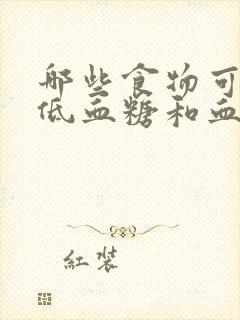 那些食物可
低血糖和血
红装